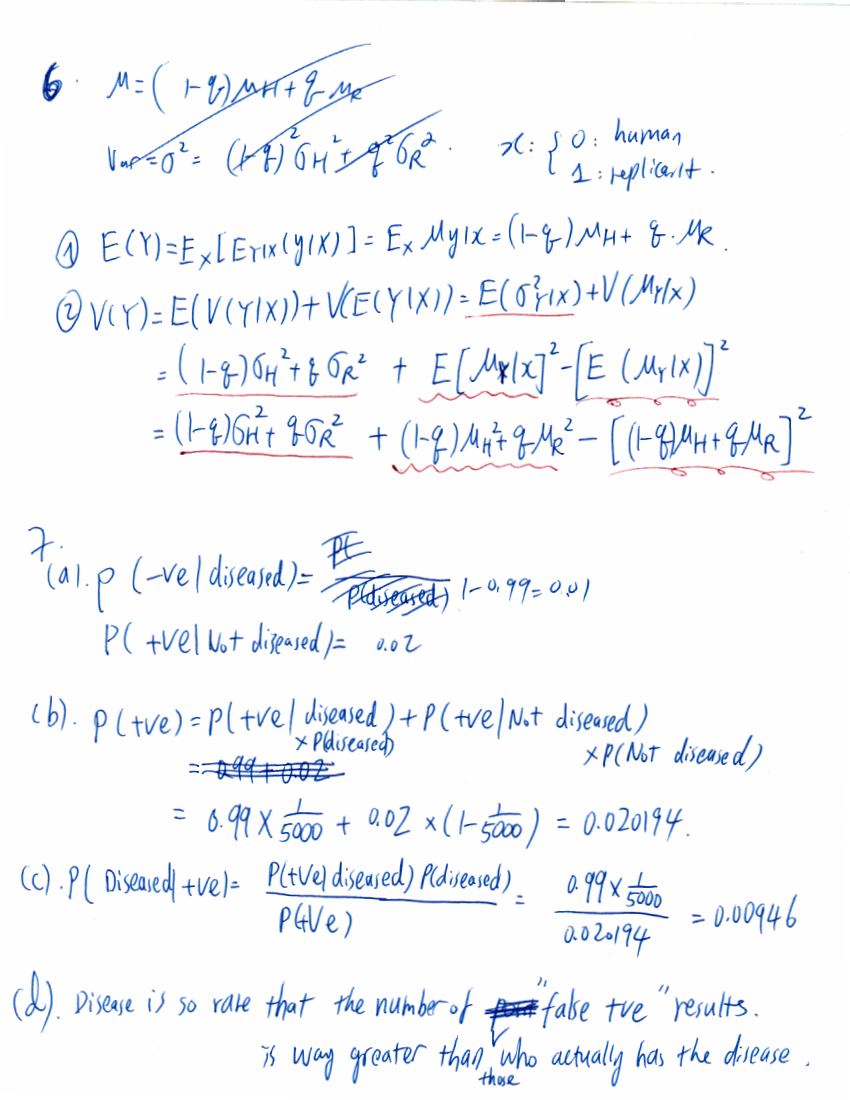 6. μ = (1-q)μH + q μR
Var = σ² = (1-q)² σH² + q² σR².
x: { 0: human
1: replicant.
① E(Y) = E_X[E_{Y|X}(y|X)] = E_X μ_{Y|X} = (1-q)μH + q·μR.
② V(Y) = E(V(Y|X)) + V(E(Y|X)) = E(σ²_{Y|X}) + V(μ_{Y|X})
= (1-q)σH² + q σR² + E[μ_{Y|X}]² - [E(μ_{Y|X})]²
= (1-q)σH² + qσR² + (1-q)μH² + qμR² - [(1-q)μH + qμR]²
7.
(a). P(-ve | diseased) = 1-0.99 = 0.01
P(+ve | Not diseased) = 0.02
(b). P(+ve) = P(+ve | diseased) + P(+ve | Not diseased)
× P(diseased) × P(Not diseased)
= 0.99 + 0.02
= 0.99 × 1/5000 + 0.02 × (1 - 1/5000) = 0.020194.
(c). P(Diseased | +ve) = P(+ve | diseased) P(diseased) / P(+ve) = 0.99 × 1/5000 / 0.020194 = 0.00946
(d). Disease is so rare that the number of "false +ve" results.
is way greater than those who actually has the disease.